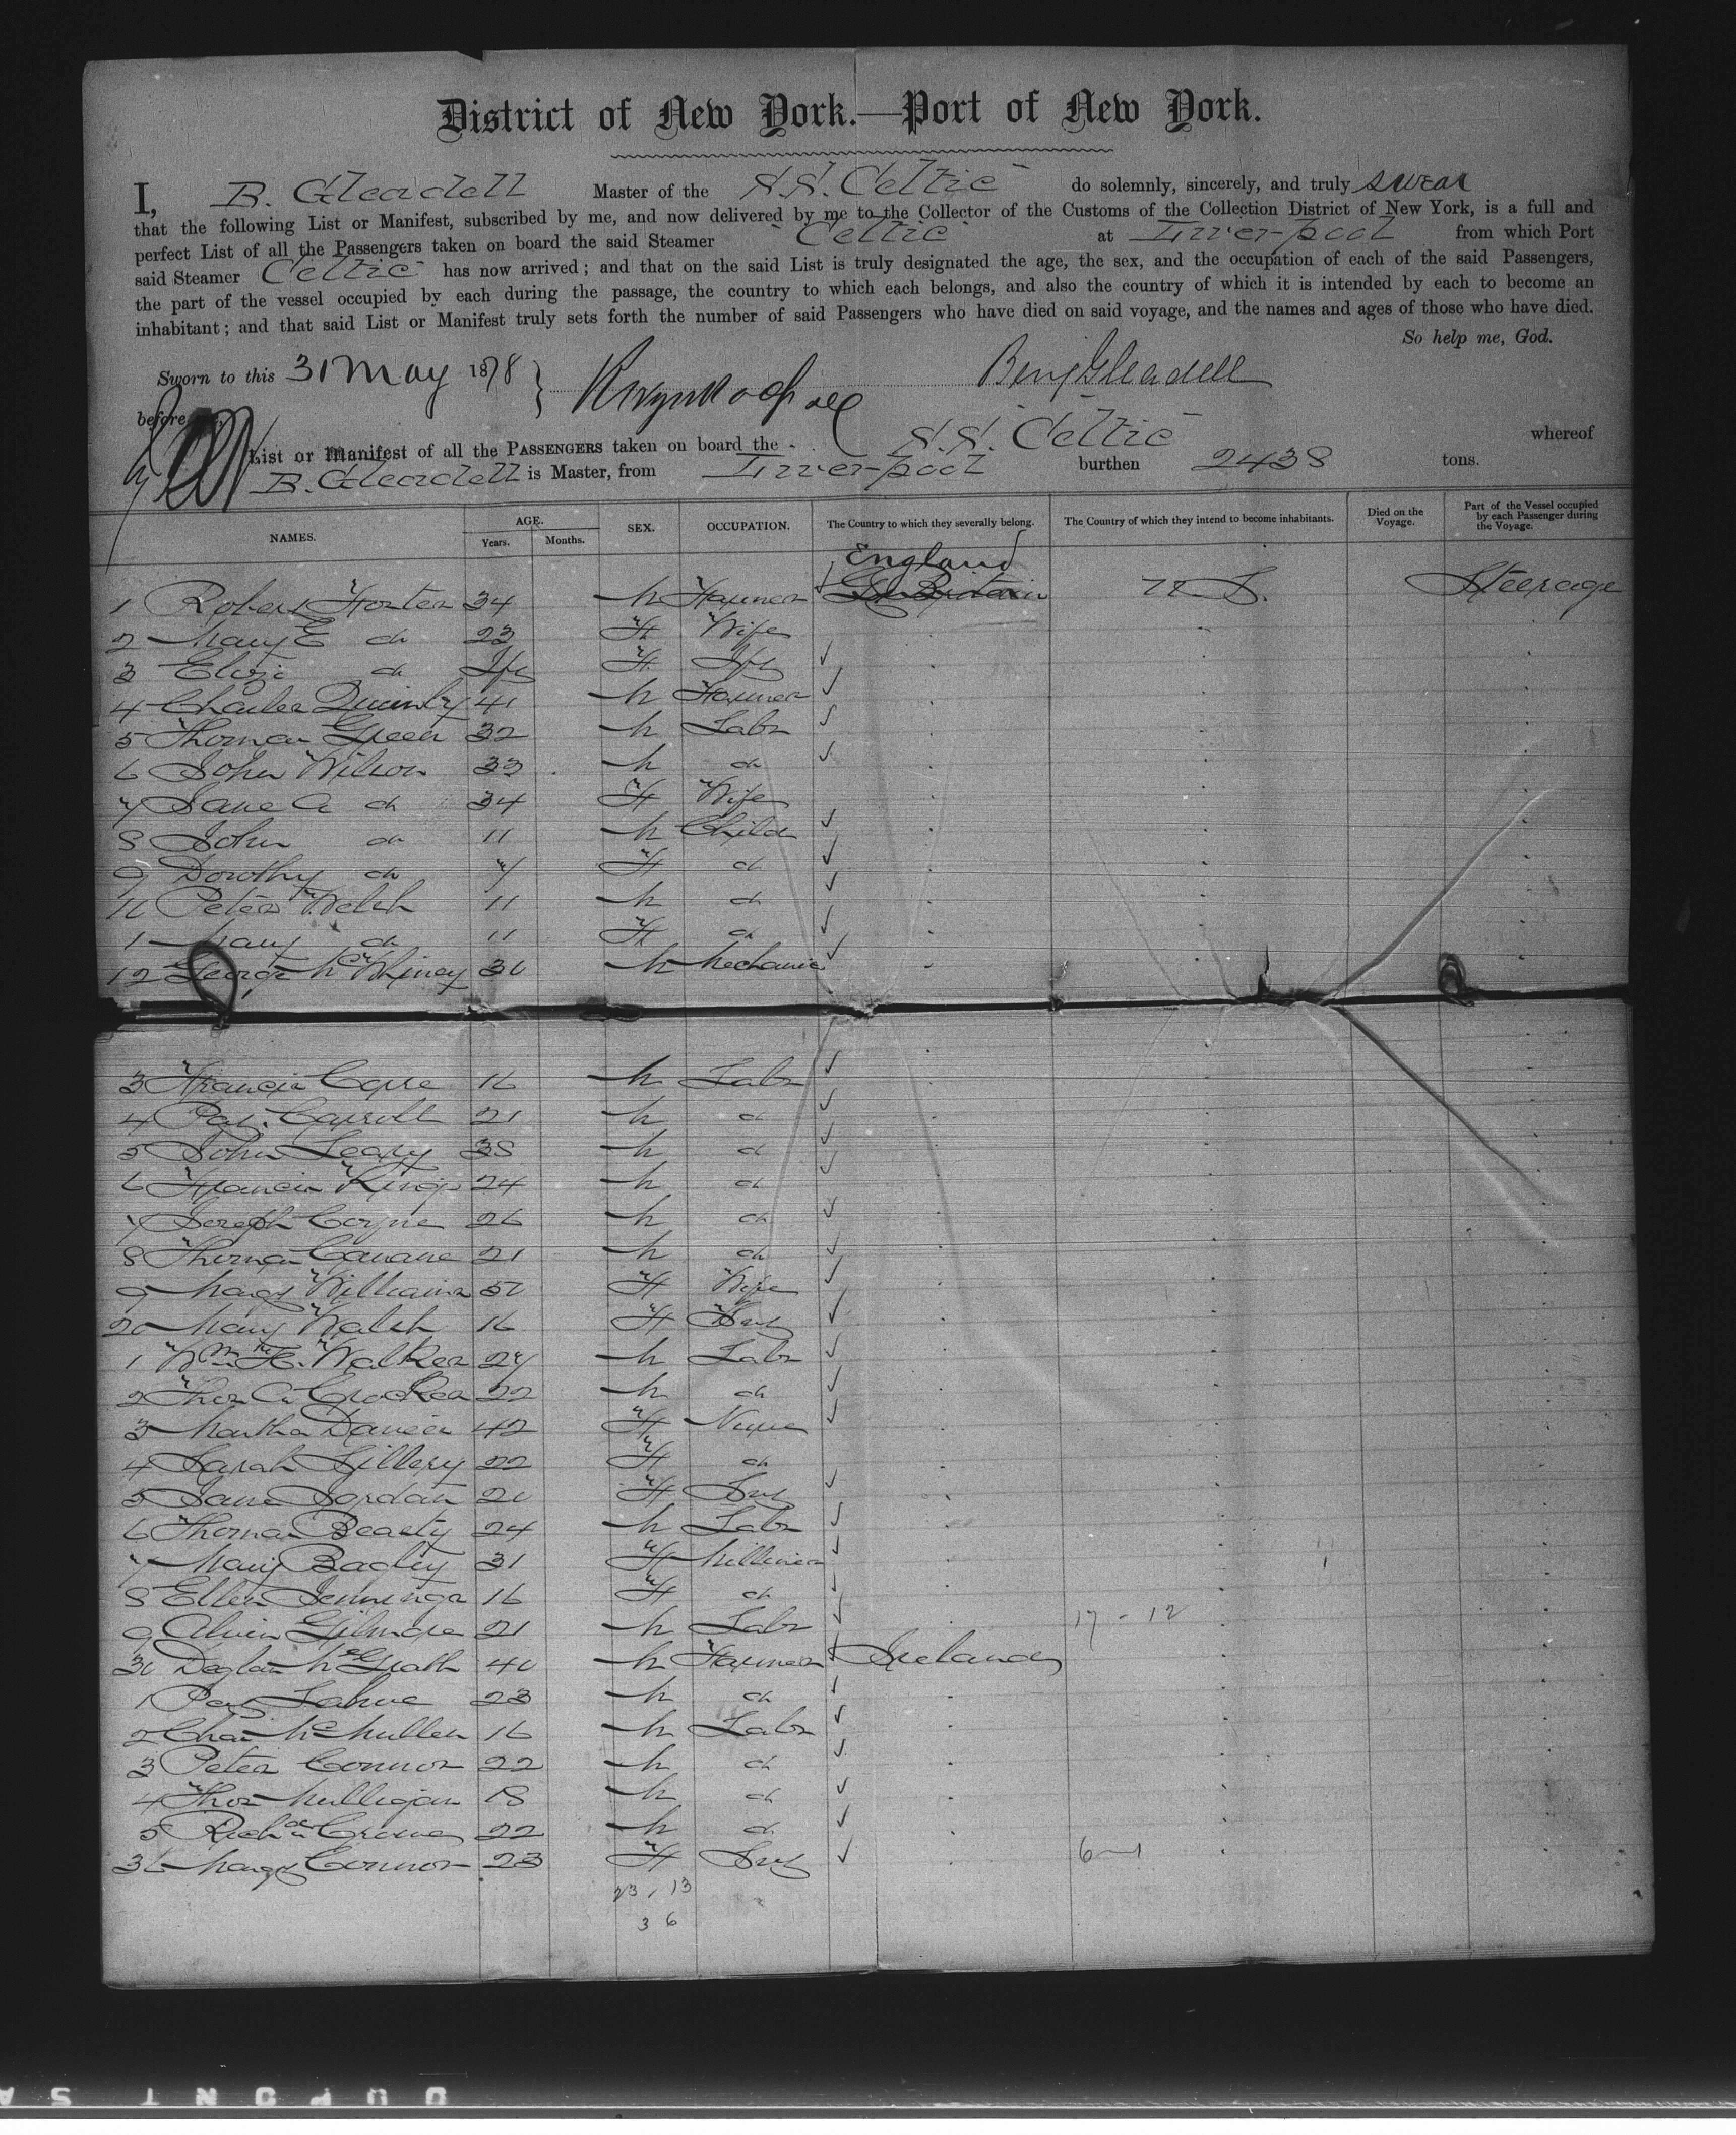 District of New York.—Port of New York.
I, B. Gleadell Master of the S.S. "Celtic" do solemnly, sincerely, and truly swear
that the following List or Manifest, subscribed by me, and now delivered by me to the Collector of the Customs of the Collection District of New York, is a full and
perfect List of all the Passengers taken on board the said Steamer "Celtic" at Liverpool from which Port
said Steamer Celtic has now arrived; and that on the said List is truly designated the age, the sex, and the occupation of each of the said Passengers,
the part of the vessel occupied by each during the passage, the country to which each belongs, and also the country of which it is intended by each to become an
inhabitant; and that said List or Manifest truly sets forth the number of said Passengers who have died on said voyage, and the names and ages of those who have died.
So help me, God.
Sworn to this 31 May 1878 } Benj Gleadell
before
List or Manifest of all the PASSENGERS taken on board the S.S. "Celtic" whereof
B. Gleadell is Master, from Liverpool burthen 2438 tons.
NAMES. AGE. Years. Months. SEX. OCCUPATION. The Country to which they severally belong. The Country of which they intend to become inhabitants. Died on the Voyage. Part of the Vessel occupied by each Passenger during the Voyage.
England
1 Robert Forter 34 M Farmer Gt Britain U S. Steerage
2 Mary E do 23 F Wife
3 do Inf F Inf
4 Charles Quimby 41 M Farmer
5 Thomas Green 32 M Labr
6 John Wilson 33 M do
7 Jane A do 34 F Wife
8 John do 11 M Child
9 Dorothy do 7 F do
10 Peter Welsh 11 M do
1 Mary do 11 F do
12 George McWhiney 30 M Mechanic
3 Francis Carre 16 M Labr
4 Pat. Carroll 21 M do
5 John Leary 38 M do
6 Francis King 24 M do
7 Joseph Coyne 26 M do
8 Thomas Canane 21 M do
9 Margt Williams 50 F Wife
20 Mary Walsh 16 F Srvt
1 Wm H. Walker 27 M Labr
2 Thos A Crocker 22 M do
3 Martha Davies 42 F Nurse
4 Sarah Sillery 22 F do
5 Jane Jordan 20 F Srvt
6 Thomas Beasty 24 M Labr
7 Mary Bagley 31 F Milliner
8 Ellen Jennings 16 F do
9 Alvin Gilmore 21 M Labr 17 - 12
30 Deglan McGrath 40 M Farmer Ireland
1 Pat Lahue 23 M do
2 Chas McMullen 16 M Labr
3 Peter Connor 22 M do
4 Thos Mulligan 18 M do
5 Richd Crowe 22 M do
36 Margt Connor 23 F Srvt 6-1
23, 13
36